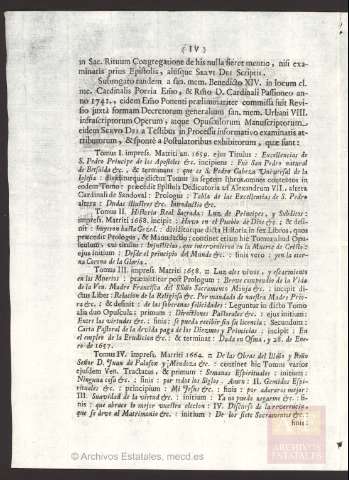 ( IV )
in Sac. Rituum Congregatione de his nulla fieret mentio, nisi exa-
minatis prius Epistolis, aliisque SERVI DEI Scriptis.
Subrogato tandem a san. mem. Benedicto XIV. in locum cl.
me. Cardinalis Porria Emo, & Rmo D. Cardinali Passioneo an-
no 1742. eidem Emo Ponenti præliminariter commissa fuit Revi-
sio juxtà formam Decretorum generalium san. mem. Urbani VIII.
infrascriptorum Operum, atque Opusculorum Manuscriptorum
eidem SERVO DEI a Testibus in Processu informativo examinatis at-
tributorum, & spontè a Postulatoribus exhibitorum, quæ sunt:
Tomus I. impress. Matriti an. 1659. ejus Titulus: Excelencias de
S. Pedro Principe de los Apostoles &c. incipiens: Fuè San Pedro natural
de Betsaida &c. & terminans: que es S. Pedro Cabeza Universal de la
Iglesia: dividiturque dictus Tomus in septem libros omnes contentos in
eodem Tomo: præcedit Epistola Dedicatoria ad Alexandrum VII. altera
Cardinali de Sandoval: Prologus: Tabla de las Excelencias de S. Pedro
altera: Dudas illustres &c. Introductio &c.
Tomus II. Historia Real Sagrada: Luz de Principes, y Subditos:
impress. Matriti 1668. incipit: Huvo en el Pueblo de Dios &c. & de-
sinit: Imperen hasta &c. dividiturque dicta Historia in sex Libros, quos
præcedit Prologus, & Manuductio; continet etiam hic Tomus aliud Opu-
sculum, cui titulus: Injusticias, que intervinieron in la Muerte de Christo:
ejus initium: Desde el principio del Mundo &c. finis vero: yen la eter-
na Corona de la Gloria.
Tomus III. impress. Matriti 1658. Luz a los vivos, y escarmiento
en los Muertos: præmittitur post Prologum: Breve compendio de la Vida
de la Ven. Madre Francisca del SSmo Sacramento Monja &c. incipit di-
ctus Liber: Relacion de la Religiosa &c. Por mandado de nuestra Madre Prio-
ra &c. & desinit: de las soberanas felicidades: Leguntur in dicto Tomo
alia duo Opuscula; primum: Direcciones Pastorales &c.: ejus initium:
Entre las virtudes &c. finis: se pueda recibir sin su licencia: Secundum:
Carta Pastoral de la devida paga de los Diezmos, y Primicias: incipit: En
el empleo de la Erudicion &c. & terminat: Dada en Osma, y 28. de Ene-
ro de 1657.
Tomus IV. impress. Matriti 1664. De las Obras del Illmo y Rmo
Señor D. Juan de Palafox y Mendoza &c. continet hic Tomus varios
ejusdem Ven. Tractatus, & primum: Semanas Espirituales: initium:
Ninguna cosa &c. finis: par todos los siglos. Amen: II. Gemidos Espiri-
tuales &c. principium: Mi Jesus &c. finis: por adoraros mejor:
III. Suavidad de la virtud &c. initium: Ya no puedo negarme &c. fi-
nis: que abrace lo mejor vuestra eleccion: IV. Discurso de la reverencia,
que se deve al Matrimonio &c. initium: De los siete Sacramentos &c.
finis:
ARCHIVOS
ESTATALES
© Archivos Estatales, mecd.es